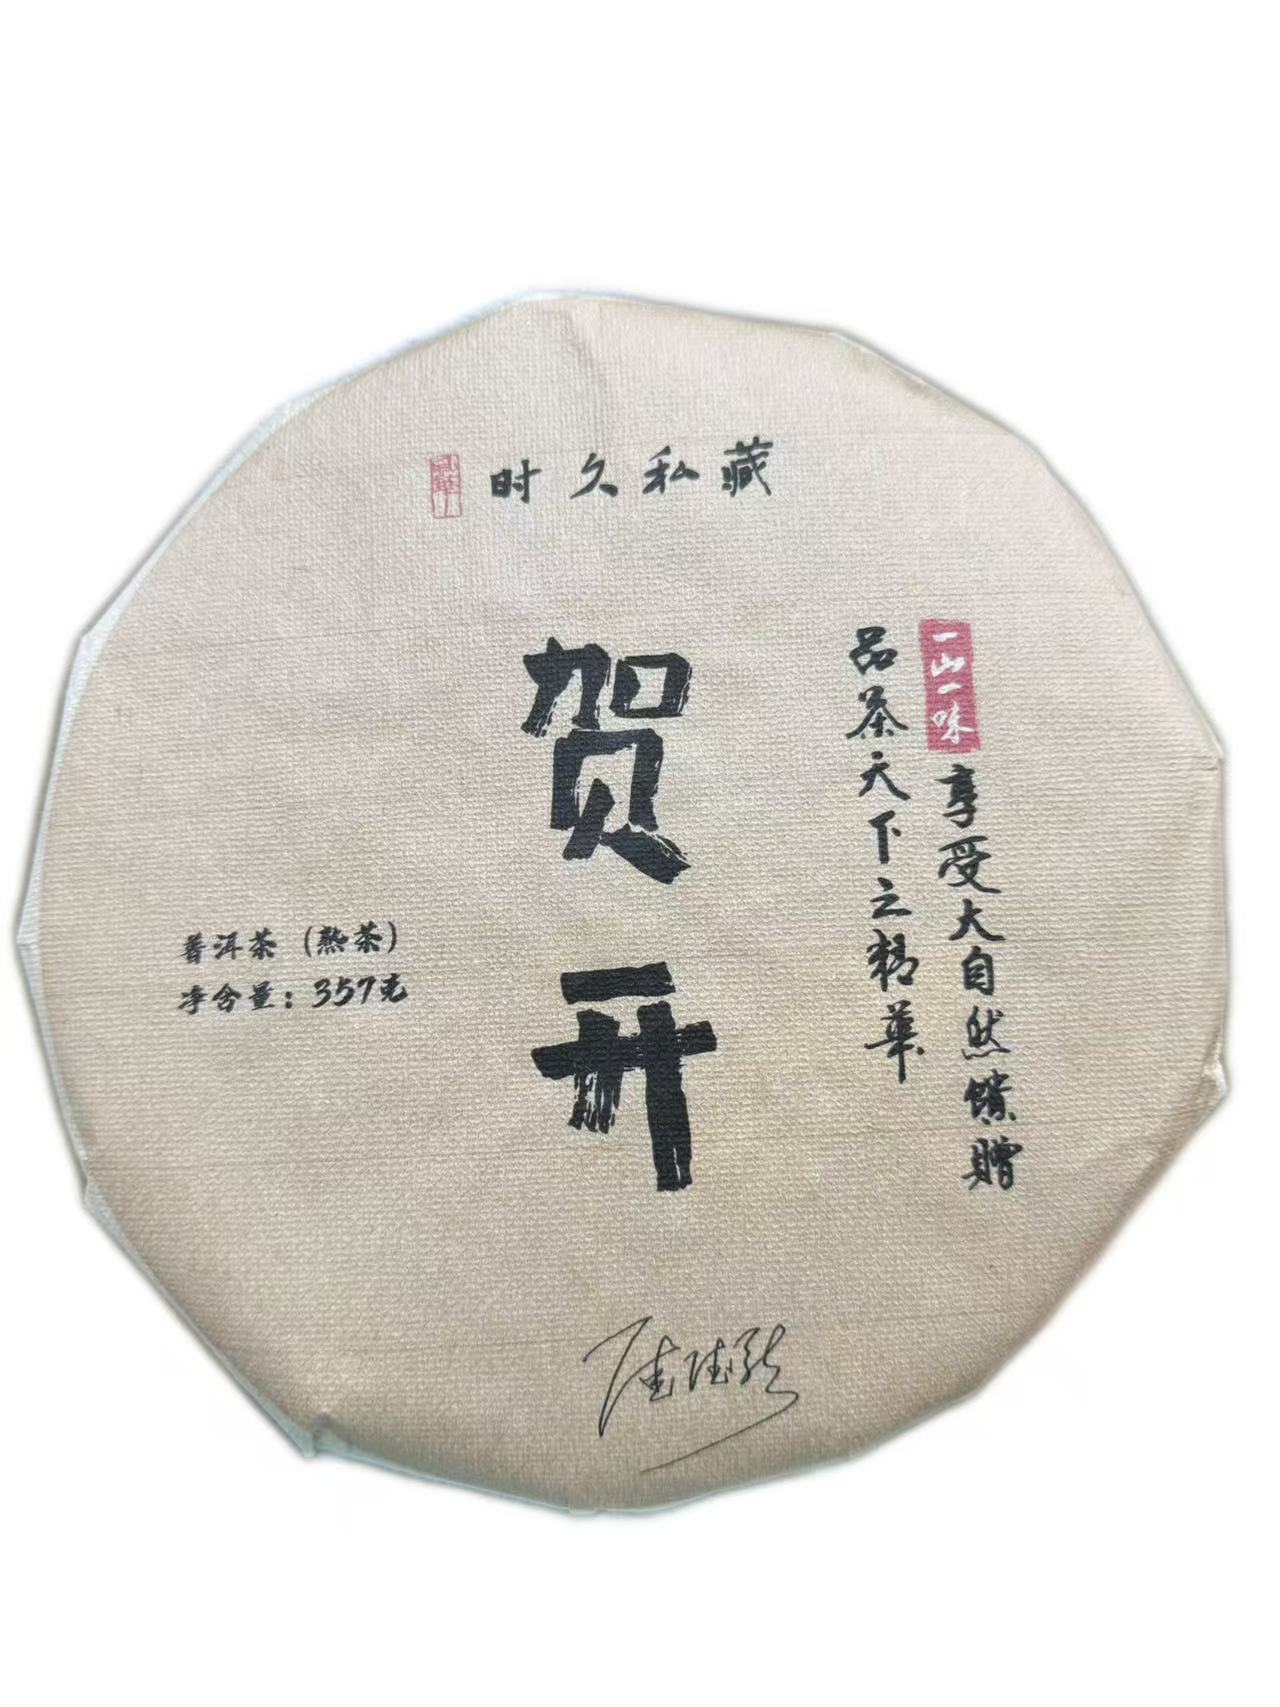 时久私藏
一山一味 享受大自然馈赠
品茶天下之精华
贺开
普洱茶（熟茶）
净含量：357克